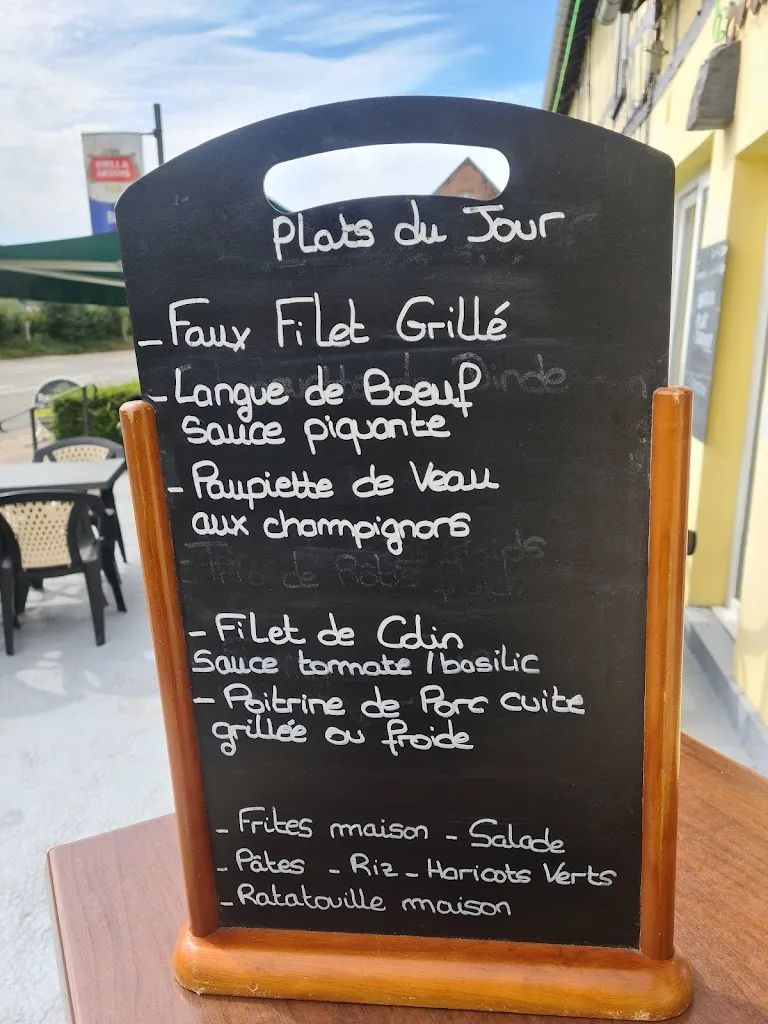 STELLA
ARTOIS
Plats du Jour
- Faux Filet Grillé
Dinde
- Langue de Boeuf
Sauce piquante
- Paupiette de Veau
aux champignons
Trio de Rôtis froids
- Filet de Colin
Sauce tomate / basilic
- Poitrine de Porc cuite
grillée ou froide
- Frites maison - Salade
- Pâtes - Riz - Haricots Verts
- Ratatouille maison